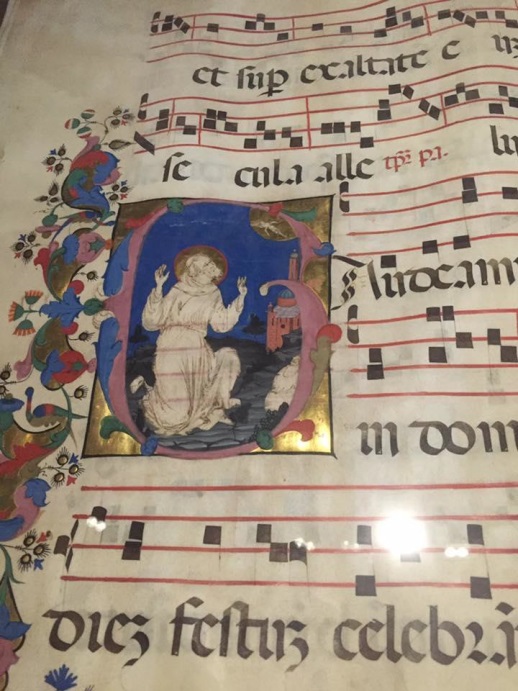 et suꝑ exaltate e
se cula alle tp̄r pa.
Audeam
in dom
diez festuz celebrā